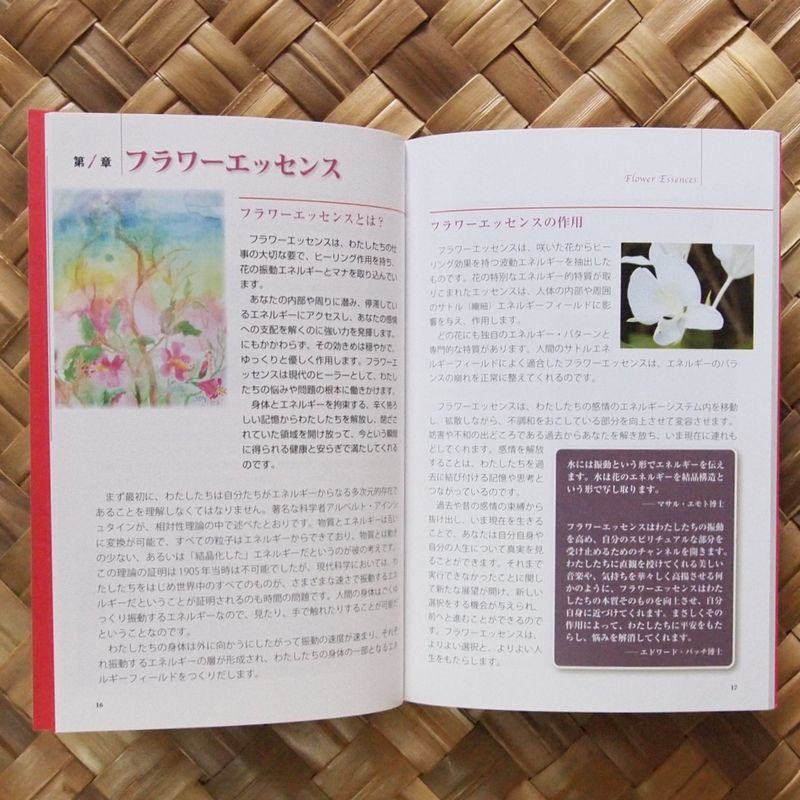 第1章 フラワーエッセンス
フラワーエッセンスとは?
フラワーエッセンスは、わたしたちの仕
事の大切な要で、ヒーリング作用を持ち、
花の振動エネルギーとマナを取り込んでい
ます。
あなたの内部や周りに潜み、停滞してい
るエネルギーにアクセスし、あなたの感情
への支配を解くのに強い力を発揮します。
にもかかわらず、その効きめは穏やかで、
ゆっくりと優しく作用します。フラワーエ
ッセンスは現代のヒーラーとして、わたし
たちの悩みや問題の根本に働きかけます。
身体とエネルギーを拘束する、辛く悲ろ
しい記憶からわたしたちを解放し、閉ざさ
れていた領域を開け放って、今という瞬間
に得られる健康と安らぎで満たしてくれる
のです。
まず最初に、わたしたちは自分たちがエネルギーからなる多次元的存在で
あることを理解しなくてはなりません。著名な科学者アルベルト・アインシ
ュタインが、相対性理論の中で述べたとおりです。物質とエネルギーは互い
に変換が可能で、すべての粒子はエネルギーからできており、物質とは動き
の少ない、あるいは「結晶化した」エネルギーだというのが彼の考えです。
この理論の証明は1905年当時は不可能でしたが、現代科学においては、わ
たしたちをはじめ世界中のすべてのものが、さまざまな速さで振動するエネ
ルギーだということが証明されるのも時間の問題です。人間の身体はごくゆ
っくり振動するエネルギーなので、見たり、手で触れたりすることが可能だ
ということなのです。
わたしたちの身体は外に向かうにしたがって振動の速度が速まり、それぞ
れ振動するエネルギーの層が形成され、わたしたちの身体の一部となるエネ
ルギーフィールドをつくりだします。
16
Flower Essences
フラワーエッセンスの作用
フラワーエッセンスは、咲いた花からヒー
リング効果を持つ波動エネルギーを抽出した
ものです。花の特別なエネルギー的特質が取
りこまれたエッセンスは、人体の内部や周囲
のサトル(繊細)エネルギーフィールドに影
響を与え、作用します。
どの花にも独自のエネルギー・パターンと
専門的な特質があります。人間のサトルエネ
ルギーフィールドによく適合したフラワーエッセンスは、エネルギーのバラ
ンスの崩れを正常に整えてくれるのです。
フラワーエッセンスは、わたしたちの感情のエネルギーシステム内を移動
し、拡散しながら、不調和をおこしている部分を向上させて変容させます。
妨害や不和の出どころである過去からあなたを解き放ち、いま現在に連れも
どしてくれます。感情を解放
することは、わたしたちを過
去に結び付ける記憶や思考と
つながっているのです。
過去や昔の感情の束縛から
抜け出し、いま現在を生きる
ことで、あなたは自分自身や
自分の人生について真実を見
ることができます。それまで
実行できなかったことに関し
て新たな展望が開け、新しい
選択をする機会が与えられ、
前へと進むことができるので
す。フラワーエッセンスは、
よりよい選択と、よりよい人
生をもたらします。
水には振動という形でエネルギーを伝え
ます。水は花のエネルギーを結晶構造と
いう形で写し取ります。
——マサル・エモト博士
フラワーエッセンスはわたしたちの振動
を高め、自分のスピリチュアルな部分を
受け止めるためのチャンネルを開きます。
わたしたちに直観を授けてくれる美しい
音楽や、気持ちを華々しく高揚させる何
かのように、フラワーエッセンスはわた
したちの本質そのものを向上させ、自分
自身に近づけてくれます。まさしくその
作用によって、わたしたちに平安をもた
らし、悩みを解消してくれます。
——エドワード・バッチ博士
17